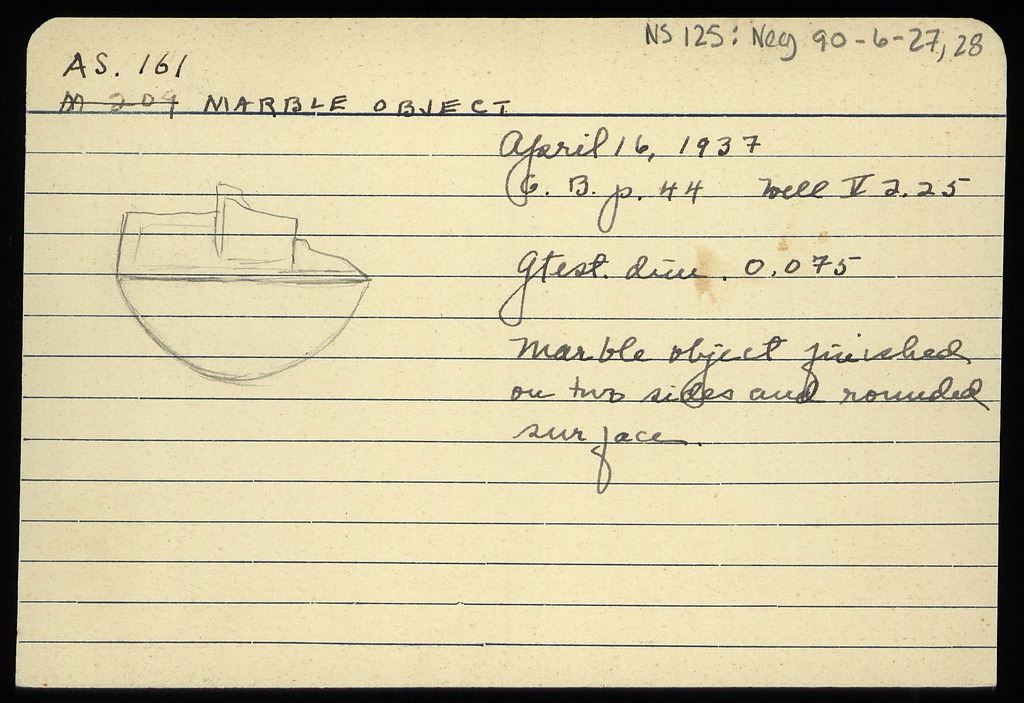 NS 125: Neg 90-6-27, 28
AS. 161
M 209 MARBLE OBJECT
April 16, 1937
G. B. p. 44 Well V 2.25
Gtest. dim. 0.075
Marble object finished
on two sides and rounded
surface.